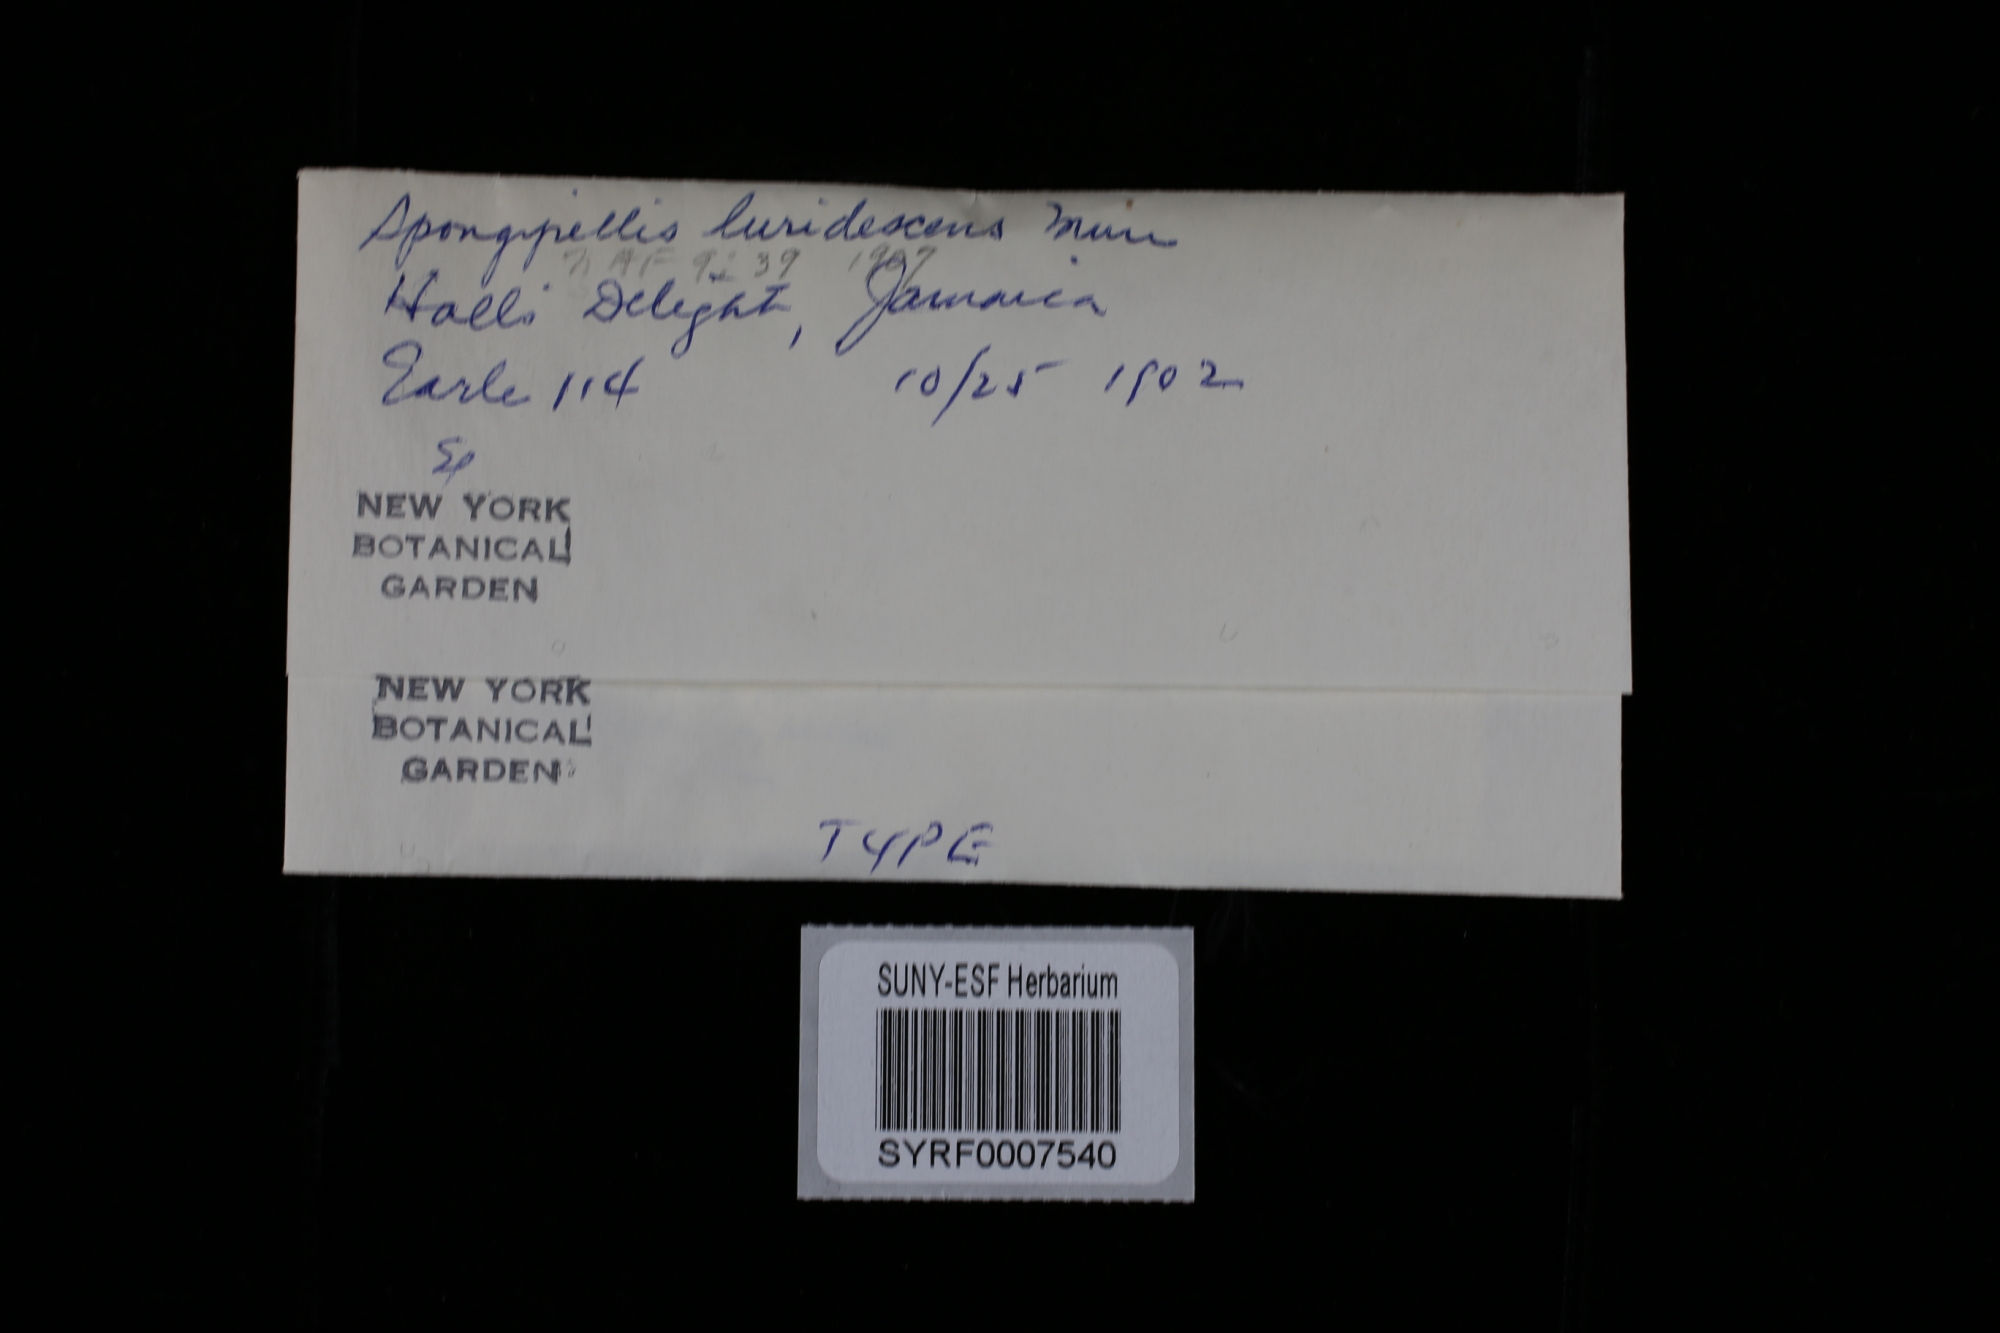 Spongipellis luridescens Murr
NAF 9: 39 1907
Hall's Delight, Jamaica
Earle 114 10/25 1902
NEW YORK
BOTANICAL
GARDEN
NEW YORK
BOTANICAL
GARDEN
TYPE
SUNY-ESF Herbarium
SYRF0007540